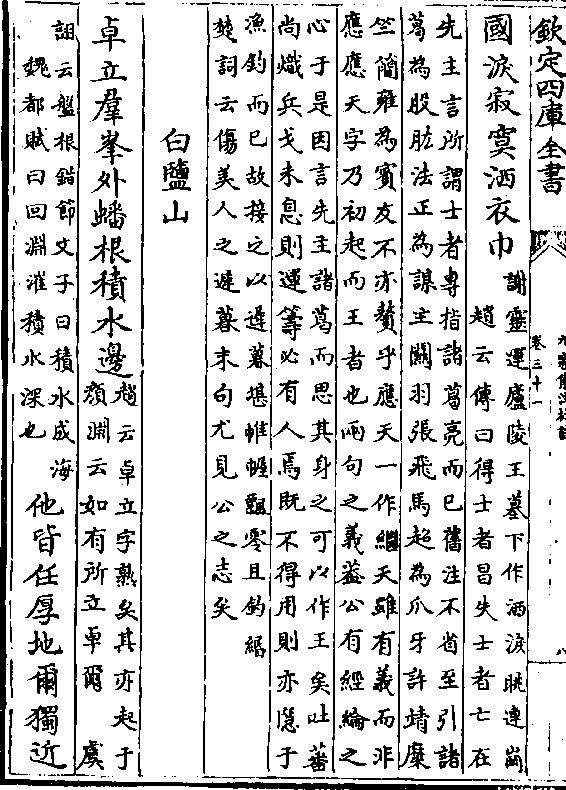 欽定四庫全書
卷三十一
八
國淚寂寞洒衣巾
謝靈運廬陵王墓下作洒淚眺連崗
趙云傳曰得士者昌失士者亡在
先主言所謂士者專指諸葛亮而已舊注不省至引諸
葛為股肱法正為謀主關羽張飛馬超為爪牙許靖糜
竺簡雍為賓友不亦贅乎應天一作繼天雖有義而非
應應天字乃初起而王者也兩句之義蓋公有經綸之
心于是因言先主諸葛而思其身之可以作王矣吐蕃
尚熾兵戈未息則運籌必有人焉既不得用則亦隱于
漁釣而已故接之以遲暮堪帷幄飄零且釣緡
楚詞云傷美人之遲暮末句尤見公之志矣
白鹽山
卓立羣峯外蟠根積水邊
趙云卓立字熟矣其亦起于
顏淵云如有所立卓爾 虞
詡云盤根錯節文子曰積水成海
魏都賦曰回淵漼積水深也
他皆任厚地爾獨近